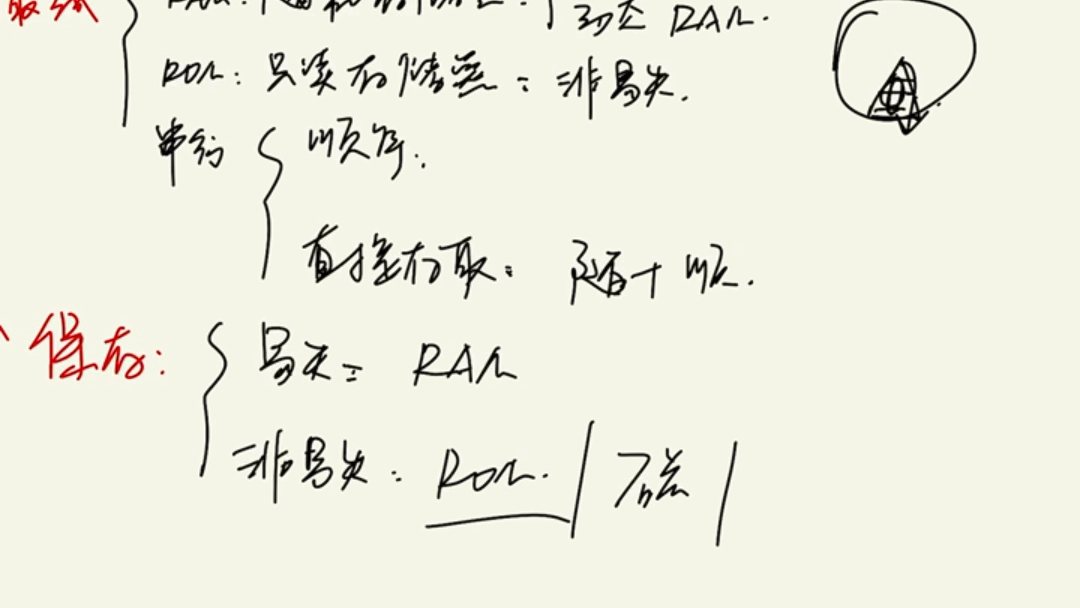 RAM: 随机存储器: 动态 RAM.
ROM: 只读存储器: 非易失.
串行 顺序:
直接存取: 随+顺.
保存: 易失: RAM
非易失: ROM. / 磁 |